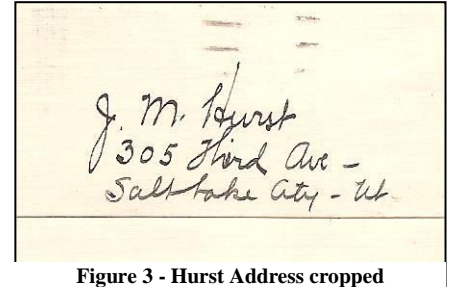 J. M. Hurst
305 Third Ave -
Salt Lake City - Ut.
Figure 3 - Hurst Address cropped